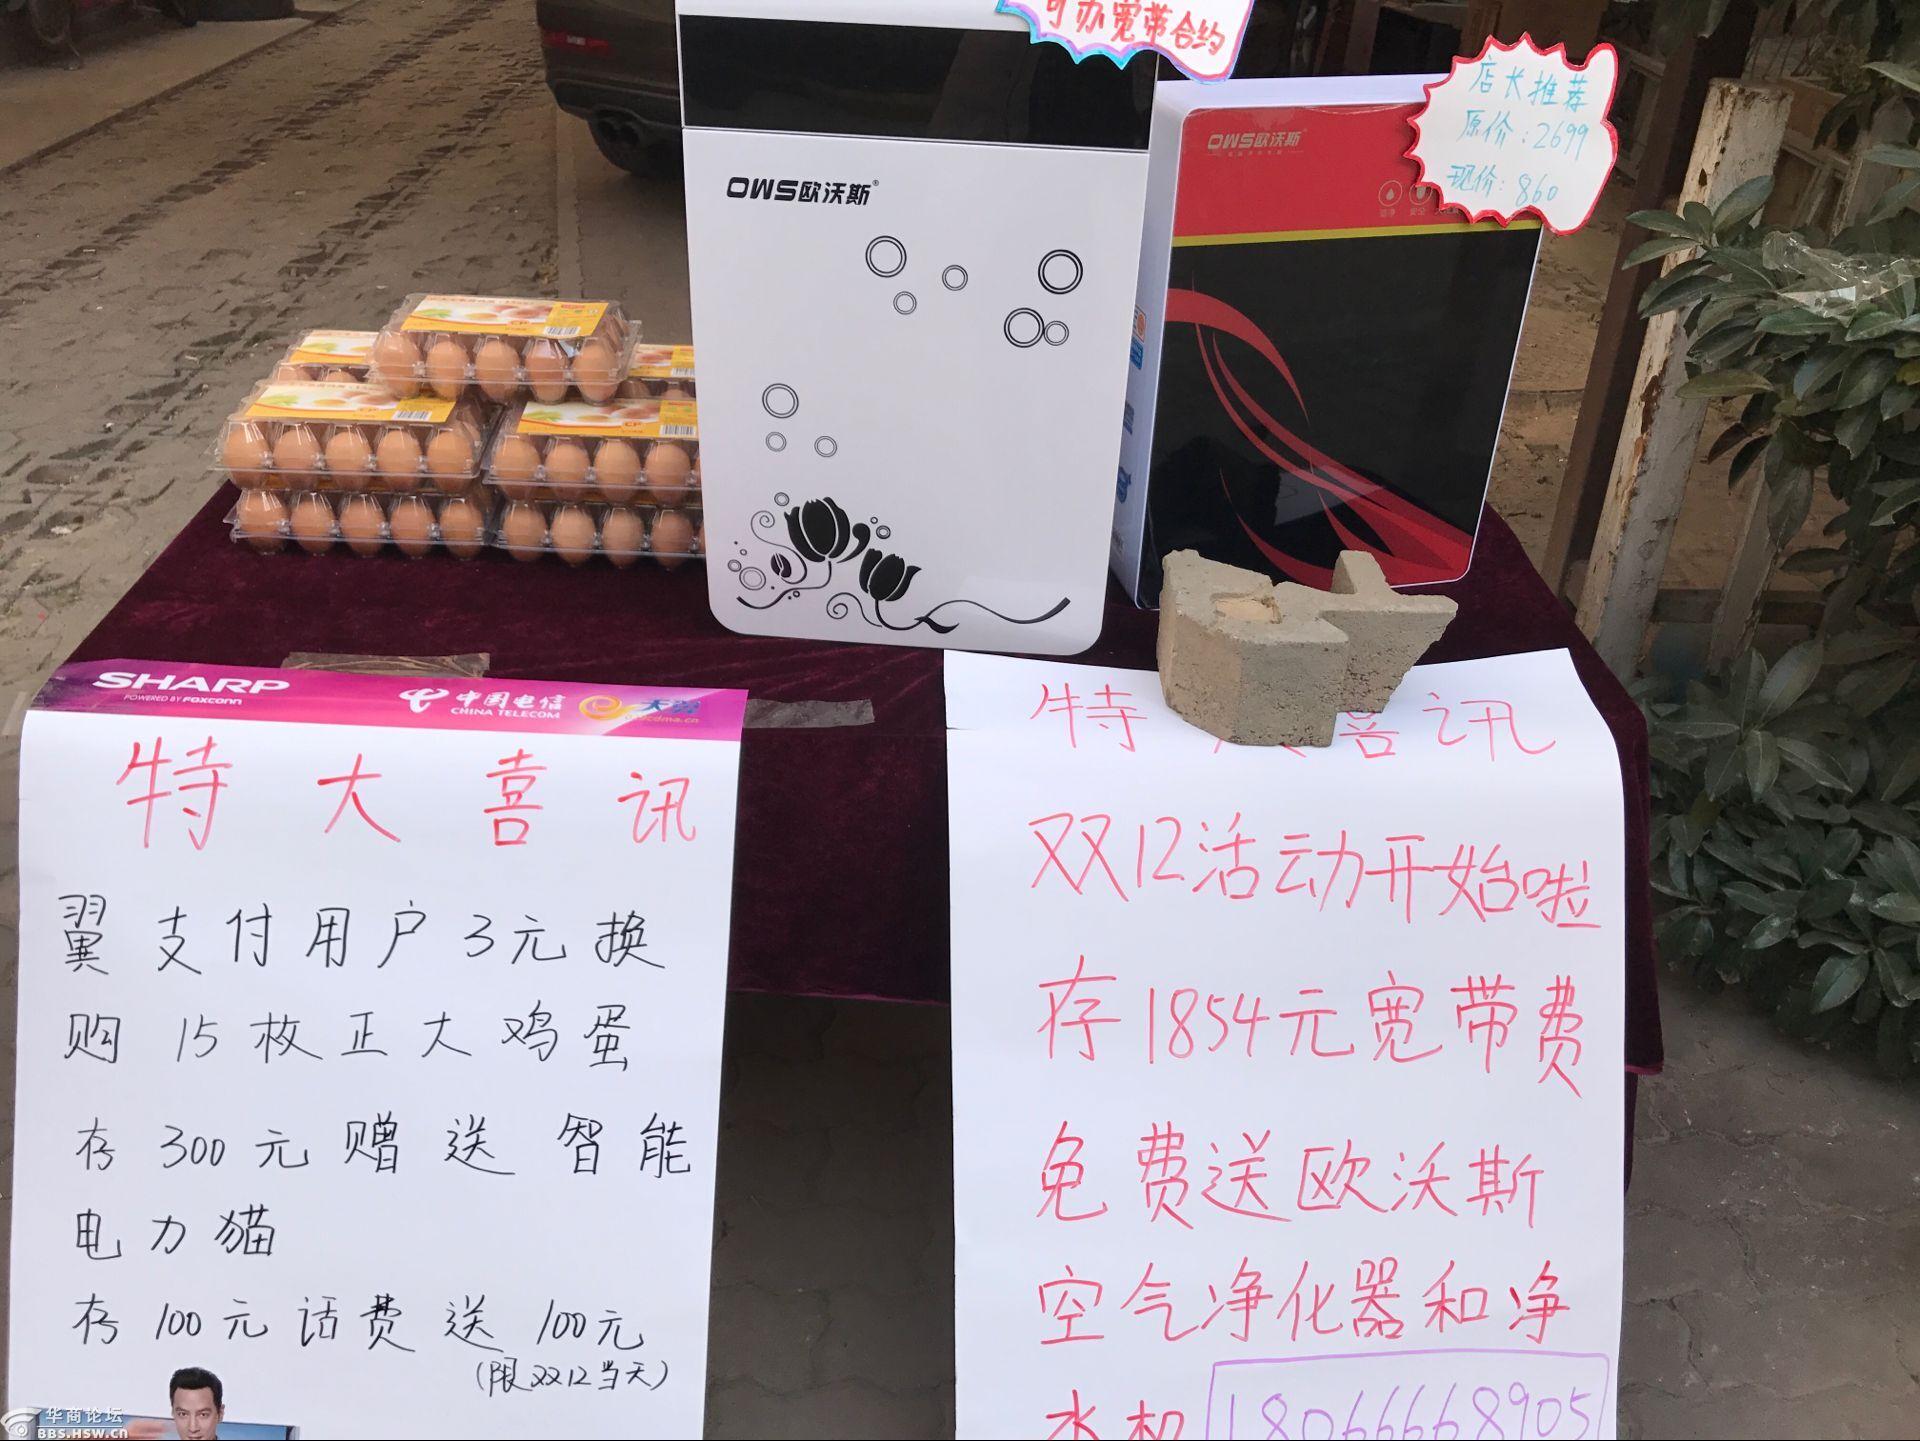 可办宽带合约
店长推荐
原价:2699
现价:860
OWS欧沃斯
OWS欧沃斯
SHARP
POWERED BY FOXCONN
中国电信
CHINA TELECOM
特大喜讯
翼支付用户3元换
购15枚正大鸡蛋
存300元赠送智能
电力猫
存100元话费送100元
(限双12当天)
特大喜讯
双12活动开始啦
存1854元宽带费
免费送欧沃斯
空气净化器和净
水机
18066668905
华商论坛
BBS.HSW.CN